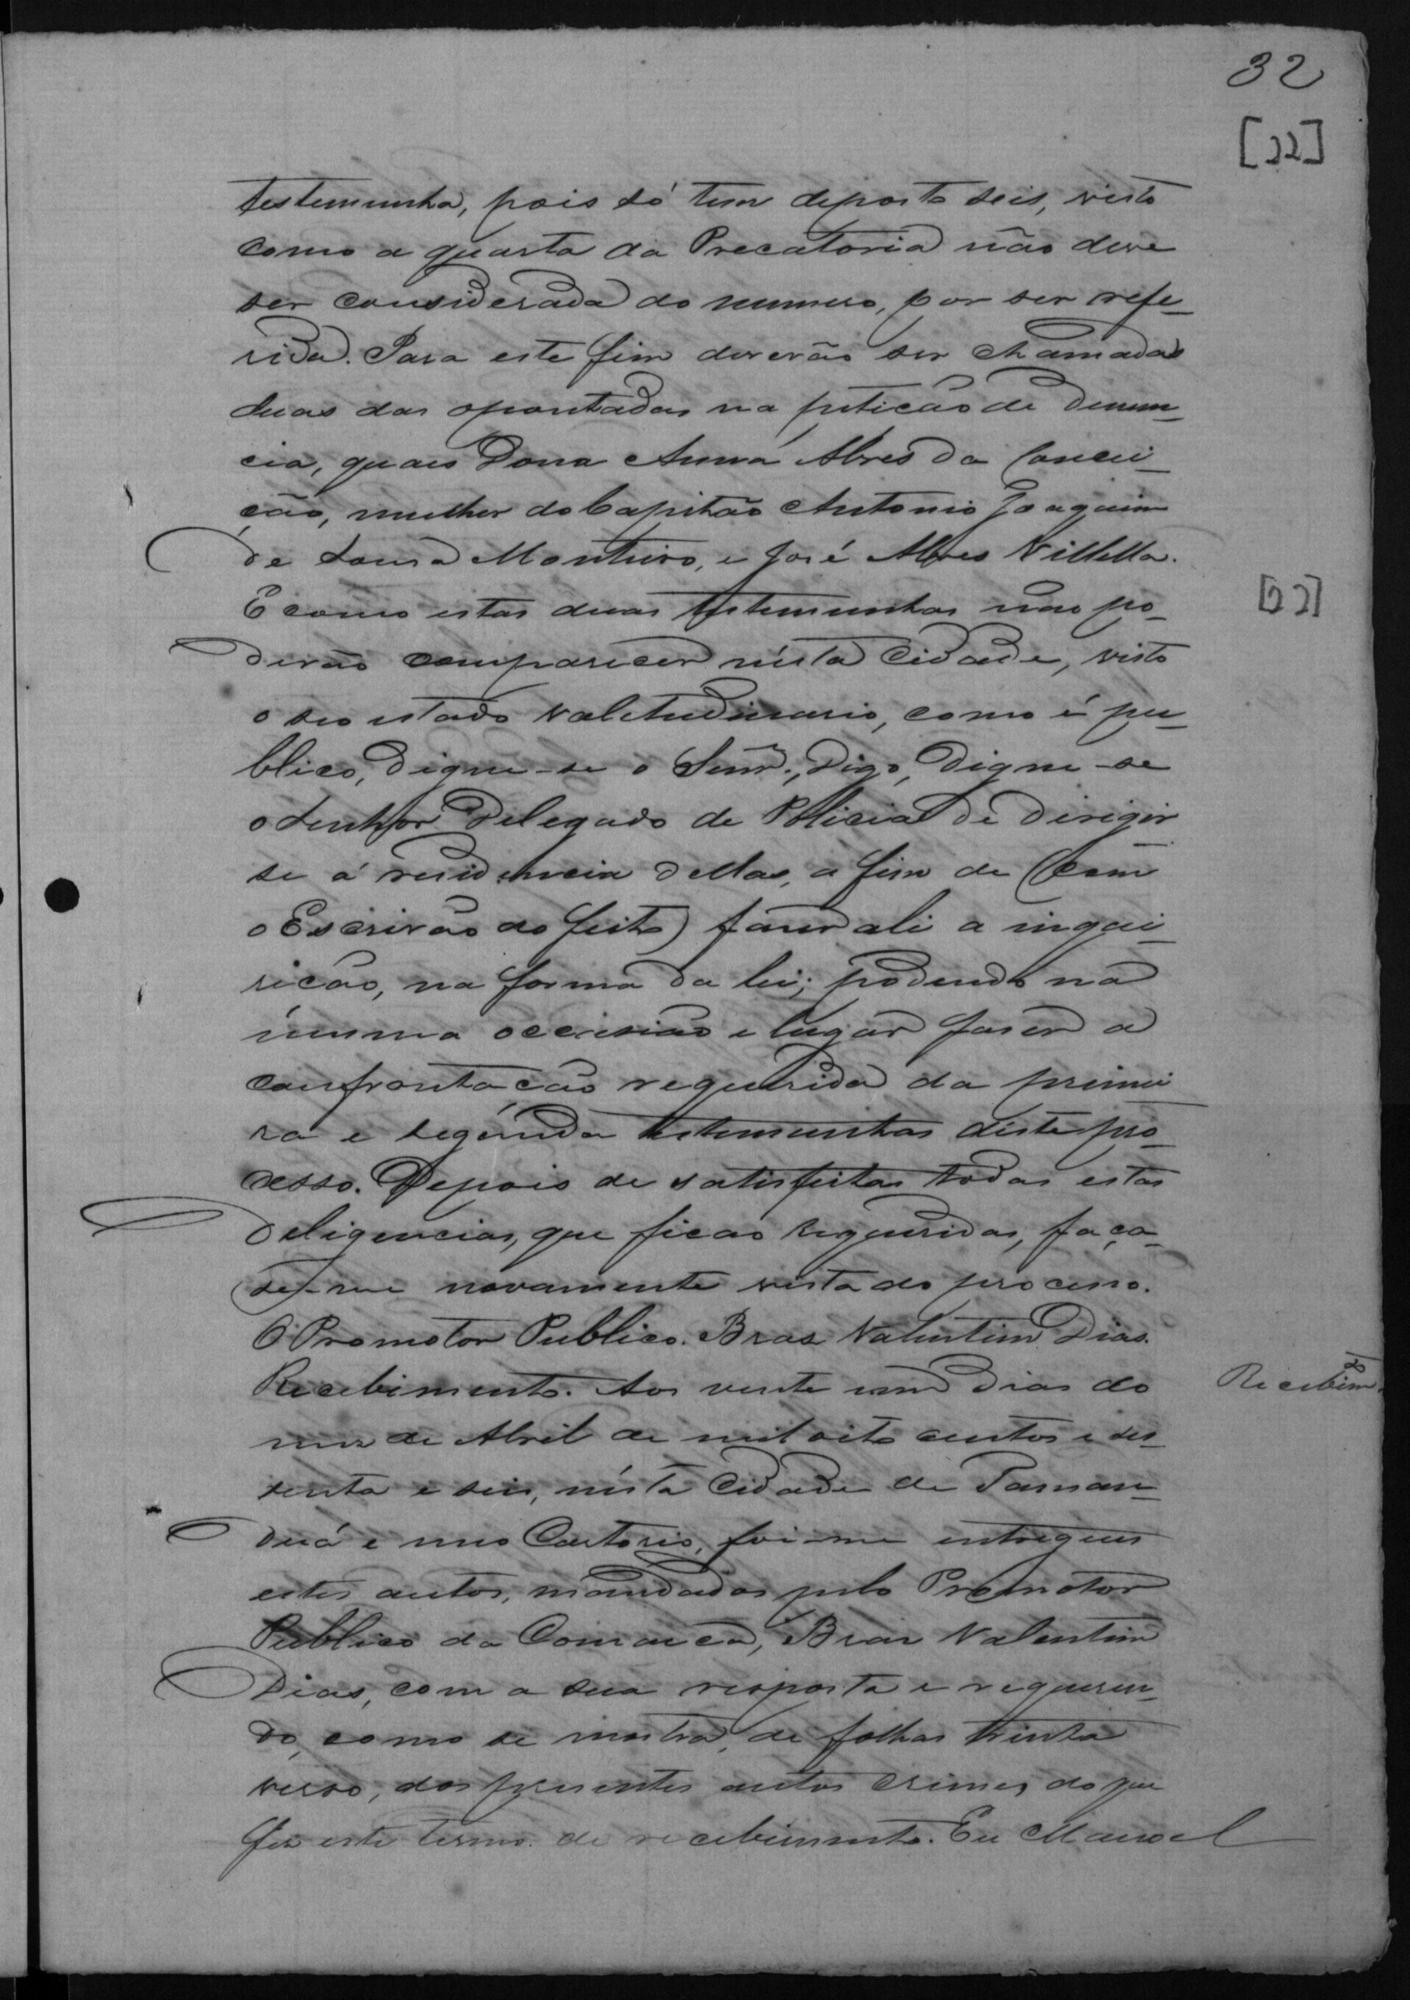 32
[22]
testemunha, pois só tem deposto seis, visto
como a quarta da Precatoria não deve
ser considerada do numero, por ser refe-
rida. Para este fim deverão ser chamadas
duas das apontadas na petição de denun-
cia, quaes Dona Anna Alves da Concei-
ção, mulher do Capitão Antonio Joaquim
de Sousa Monteiro, e José Alves Villella.
E como estas duas testemunhas não po-
derão comparecer nésta Cidade, visto
o seo estado valetudinario, como é pu-
blico, digne-se o Senr., digo, digne-se
o Senhor Delegado de Policia de dirigir
se á residencia dellas, a fim de (com
o Escrivão do feito) faser ali a inqui-
rição, na forma da lei; podendo na
mesma occasião e lugar faser a
confrontação requerida da primei
ra e segunda testemunhas deste pro-
cesso. Depois de satisfeitas todas estas
deligencias, que ficão requeridas, faça-
se-me novamente vista do processo.
O Promotor Publico. Bras Valentim Dias.
Recebimento. Aos vente um dias do
mez de Abril de mil oito centos e ses-
senta e seis, nésta Cidade de Taman-
duá e meo Cartorio, foi-me entregues
estes autos, mandados pelo Promotor
Publico da Comarca, Bras Valentim
Dias, com a sua resposta e requeren-
do, como se mostra, de folhas trinta
verso, dos presentes autos crimes, do que
fiz este termo de recebimento. Eu Manoel
[22]
Recebim.to